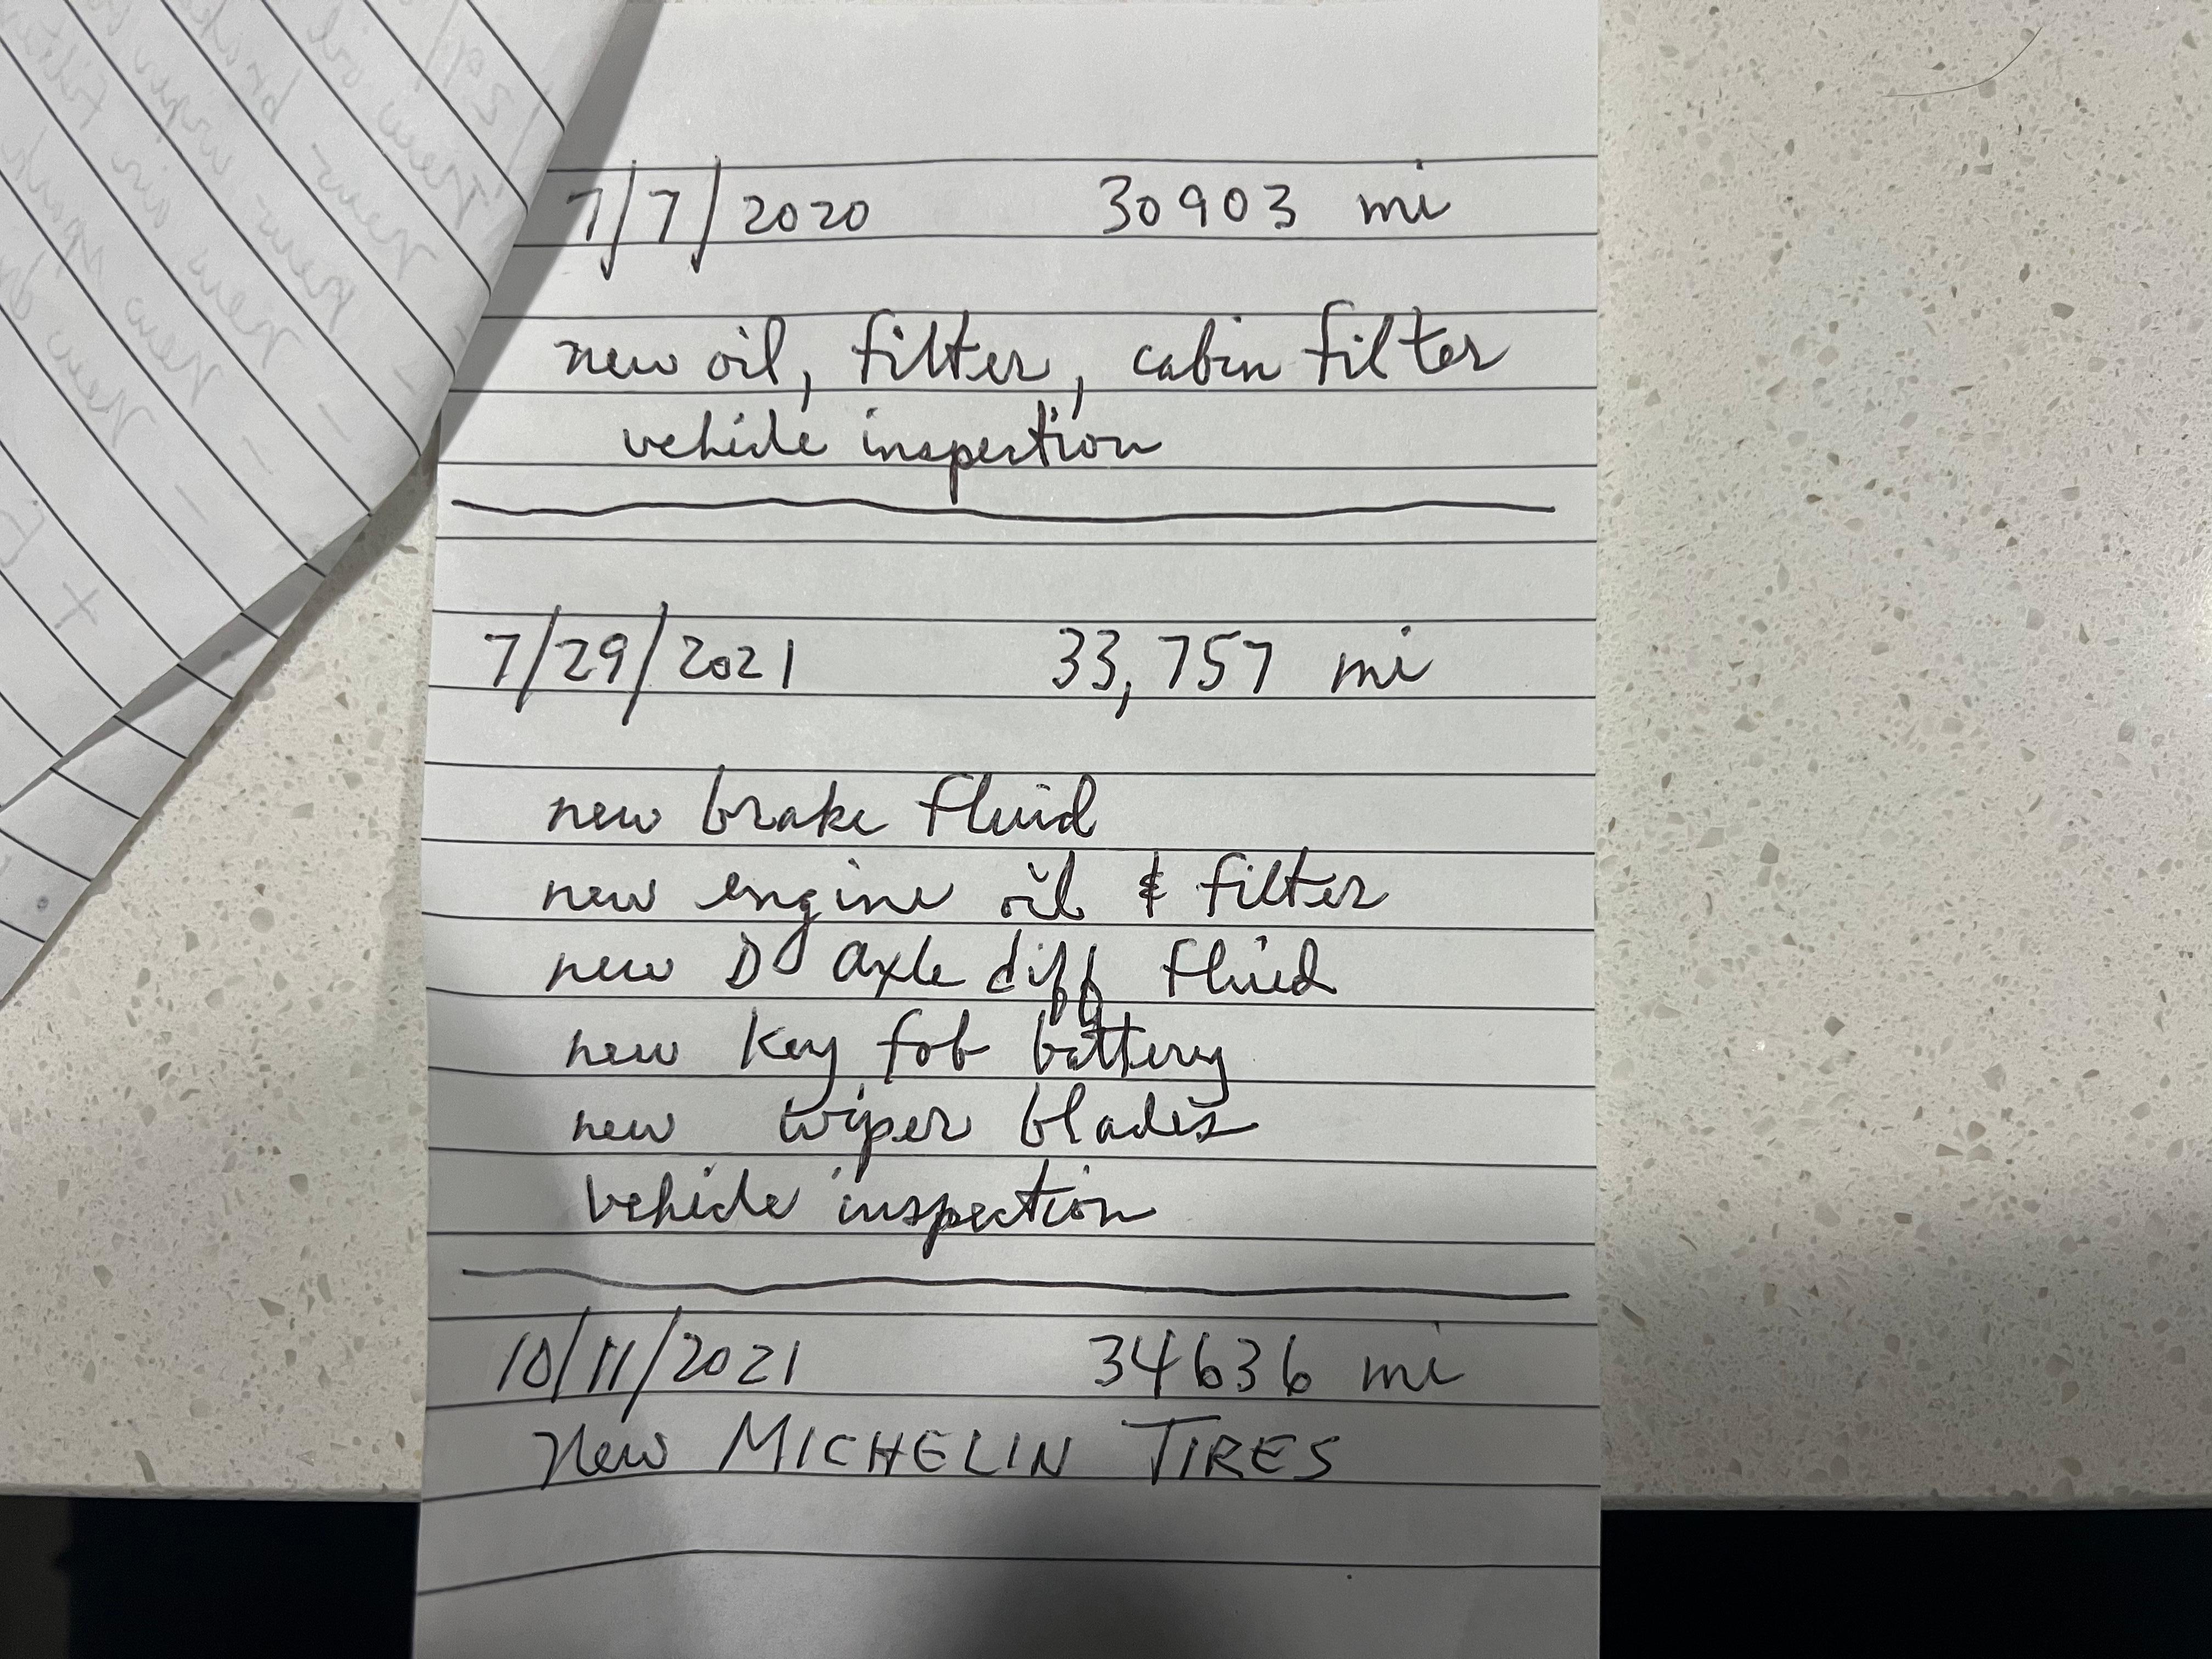 7/7/2020 30903 mi
new oil, filter, cabin filter
vehicle inspection
7/29/2021 33,757 mi
new brake fluid
new engine oil & filter
new D axle diff fluid
new key fob battery
new wiper blades
vehicle inspection
10/11/2021 34636 mi
New MICHELIN TIRES